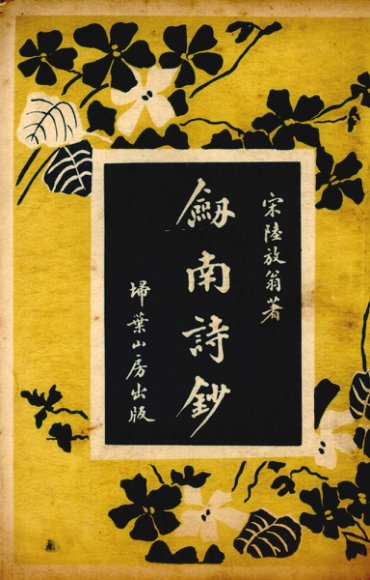 宋陸放翁著
劔南詩鈔
埽葉山房出版